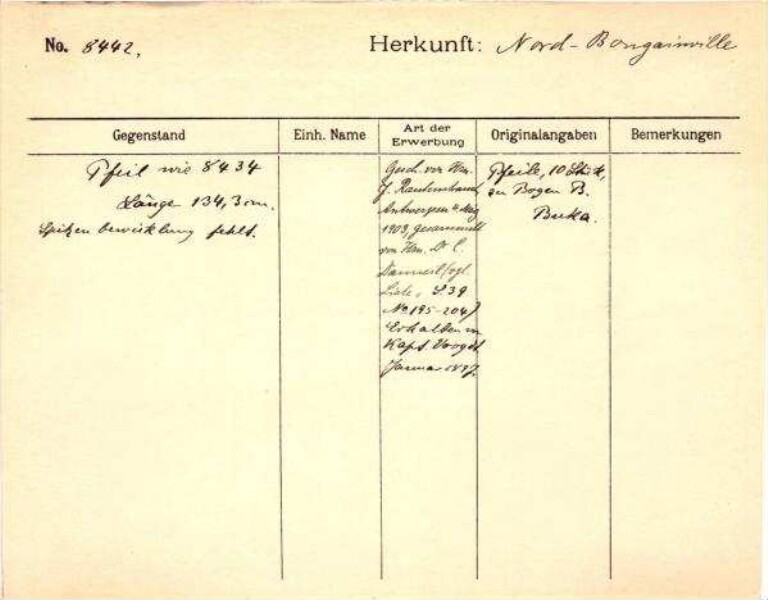 No. 8442.
Herkunft: Nord-Bougainville
Gegenstand
Einh. Name
Art der Erwerbung
Originalangaben
Bemerkungen
Pfeil wie 8434
Länge 134,3 cm.
Spitzenbewicklung fehlt.
Gesch. von Hrn.
Antwerpen 4. Mai
1903, gesammelt
von Hrn. Dr C.
(vgl.
Liste, S. 39
No 195-204)
Erhalten v.
Kapt. Voogdt
Januar 1897.
Pfeile, 10 Stück,
zu Bogen B.
Buka.